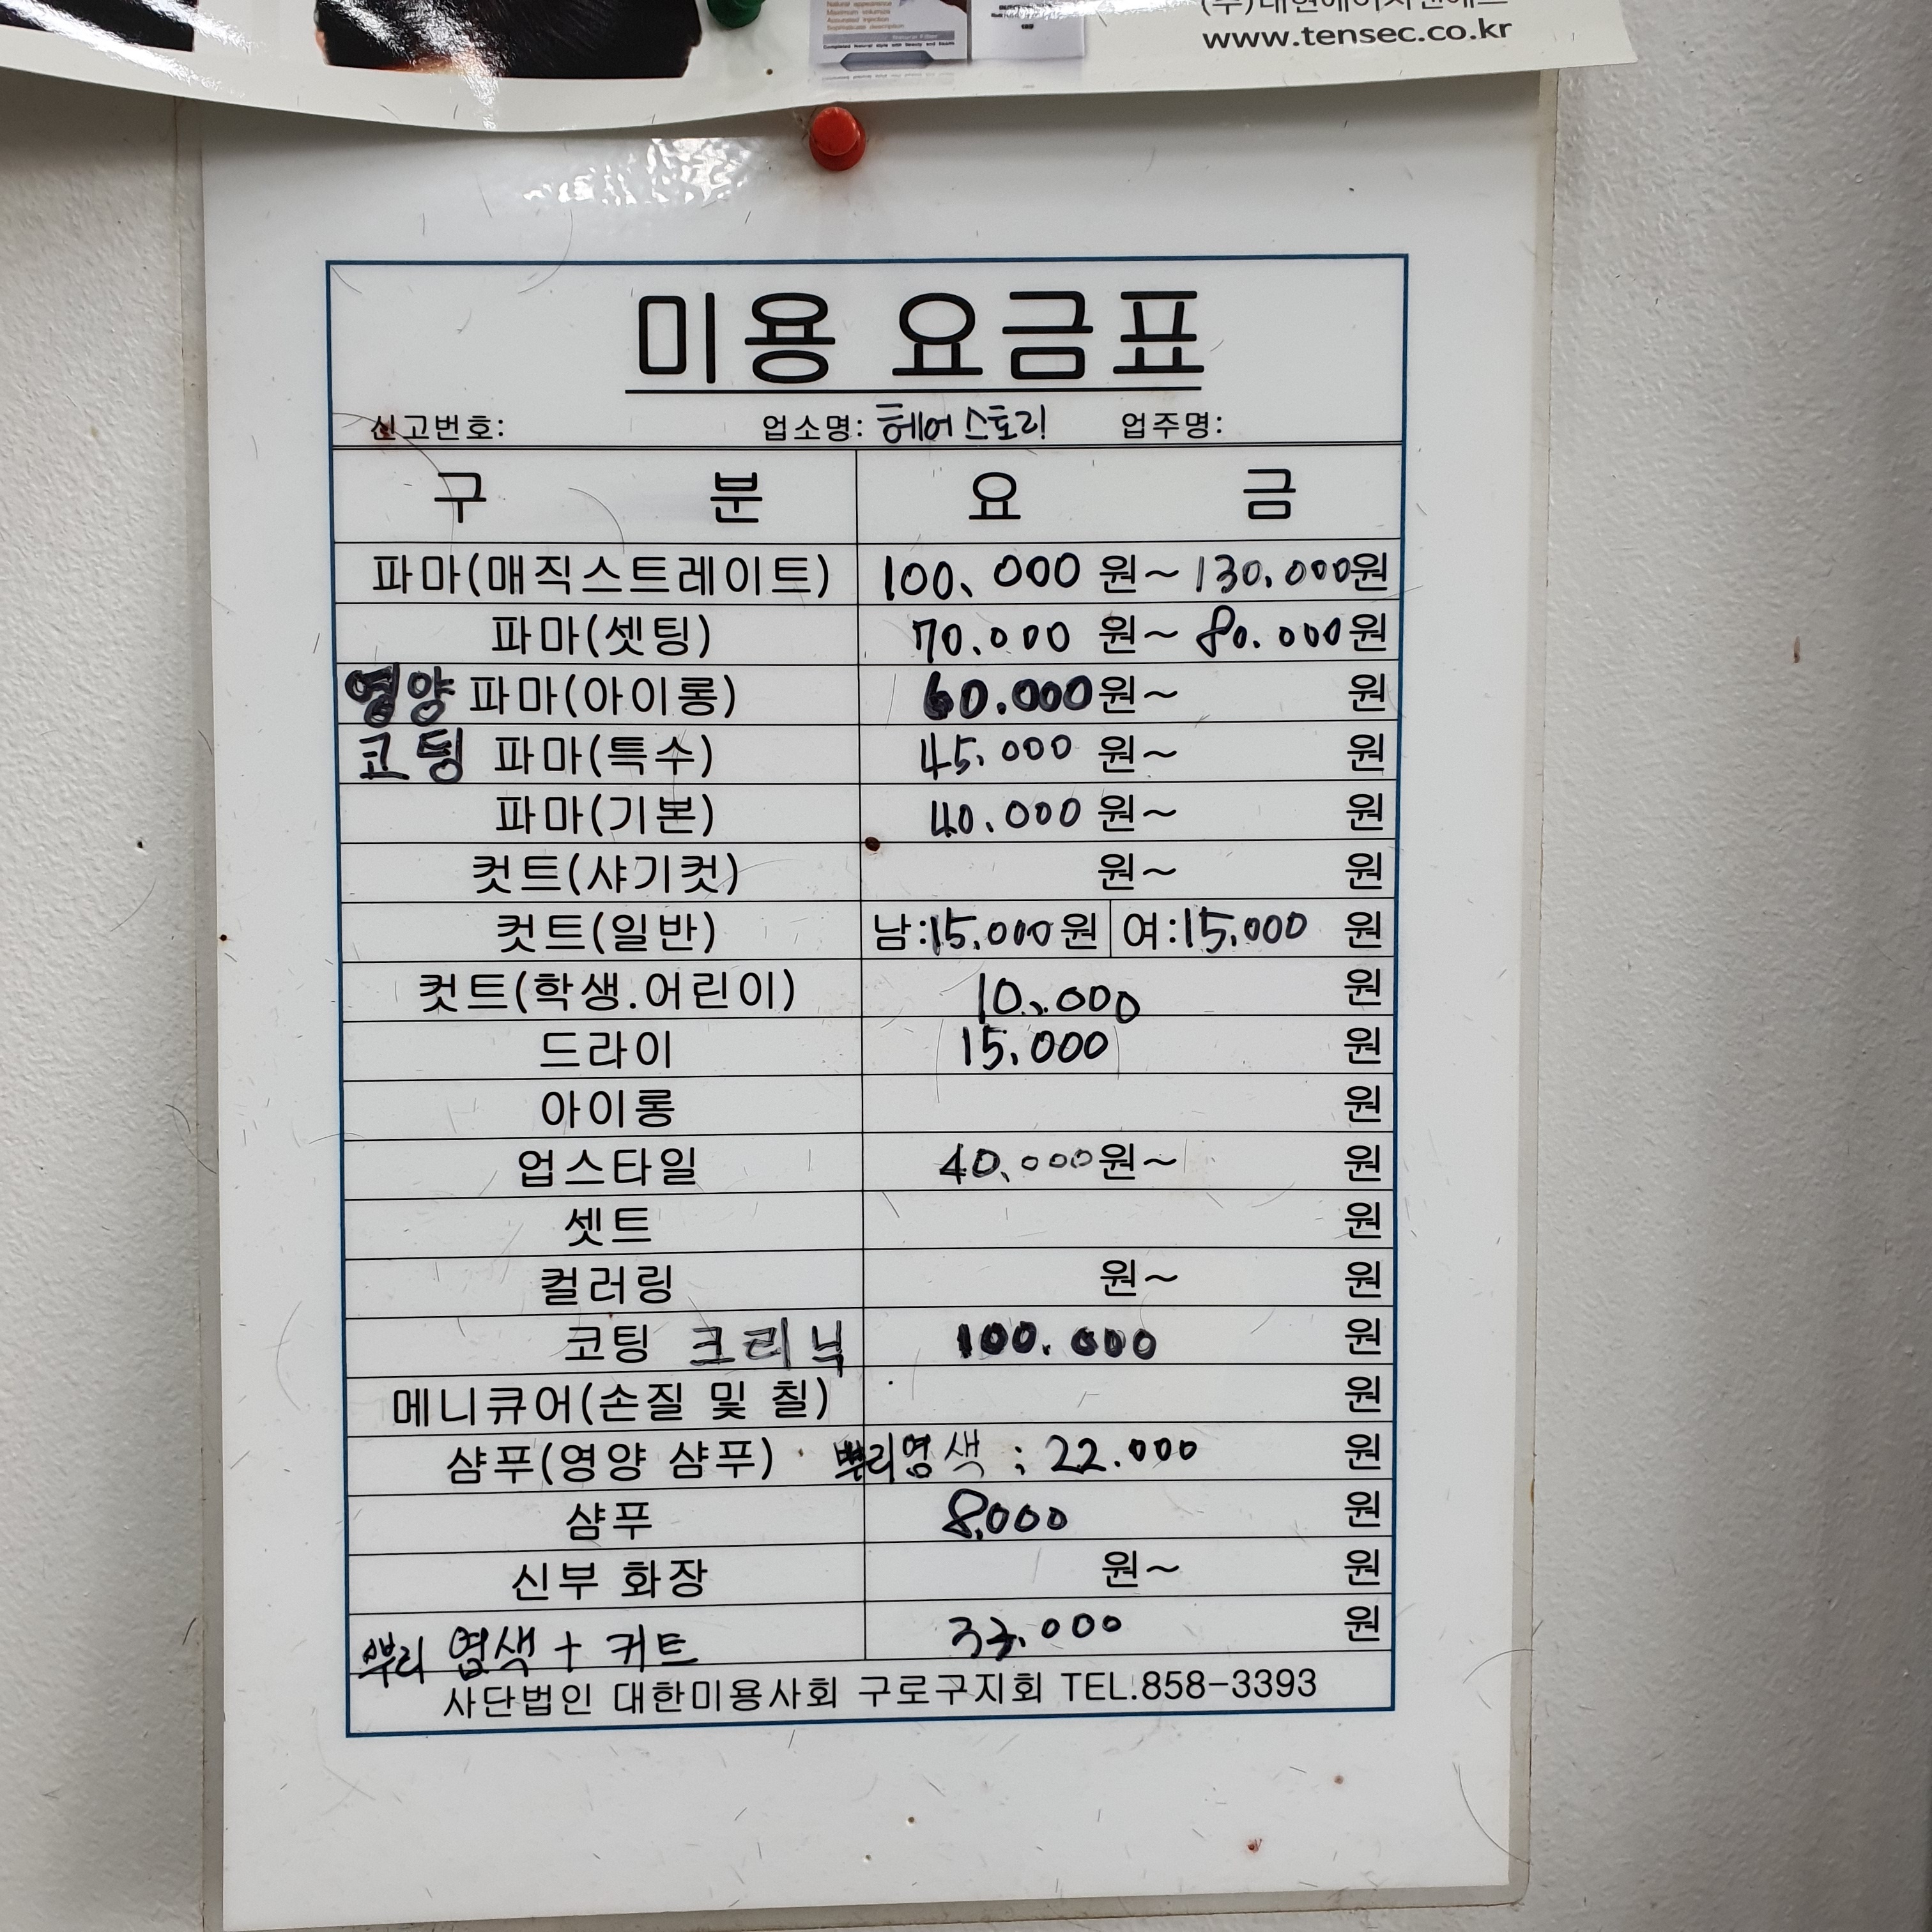 Natural appearance
Maximum volumize
Assurated injection
Sophisticate description
Natural Fiber
Completed Natural style with beauty and health
www.tensec.co.kr
미용 요금표
신고번호: 업소명: 헤어스토리 업주명:
구 분 요 금
파마(매직스트레이트) 100,000 원~130,000원
파마(셋팅) 70.000 원~80.000원
영양 파마(아이롱) 60.000원~ 원
코팅 파마(특수) 45.000 원~ 원
파마(기본) 40.000 원~ 원
컷트(샤기컷) 원~ 원
컷트(일반) 남:15,000원 여:15,000 원
컷트(학생.어린이) 10,000 원
드라이 15,000 원
아이롱 원
업스타일 40,000원~ 원
셋트 원
컬러링 원~ 원
코팅 크리닉 100.000 원
메니큐어(손질 및 칠) 원
샴푸(영양 샴푸) 뿌리염색 : 22.000 원
샴푸 8,000 원
신부 화장 원~ 원
뿌리 염색 + 커트 33,000 원
사단법인 대한미용사회 구로구지회 TEL.858-3393